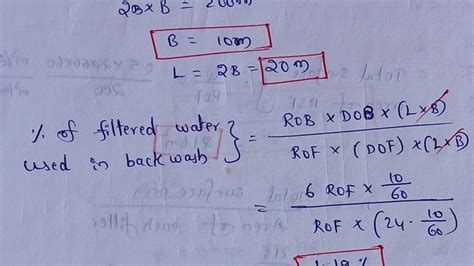 2B × B = 200m
B = 10m
L = 2B = 20m
% of filtered water used in backwash } = ROB × DOB × (L × B) / ROF × (DOF) × (L × B)
= 6 ROF × 10/60 / ROF × (24 - 10/60)